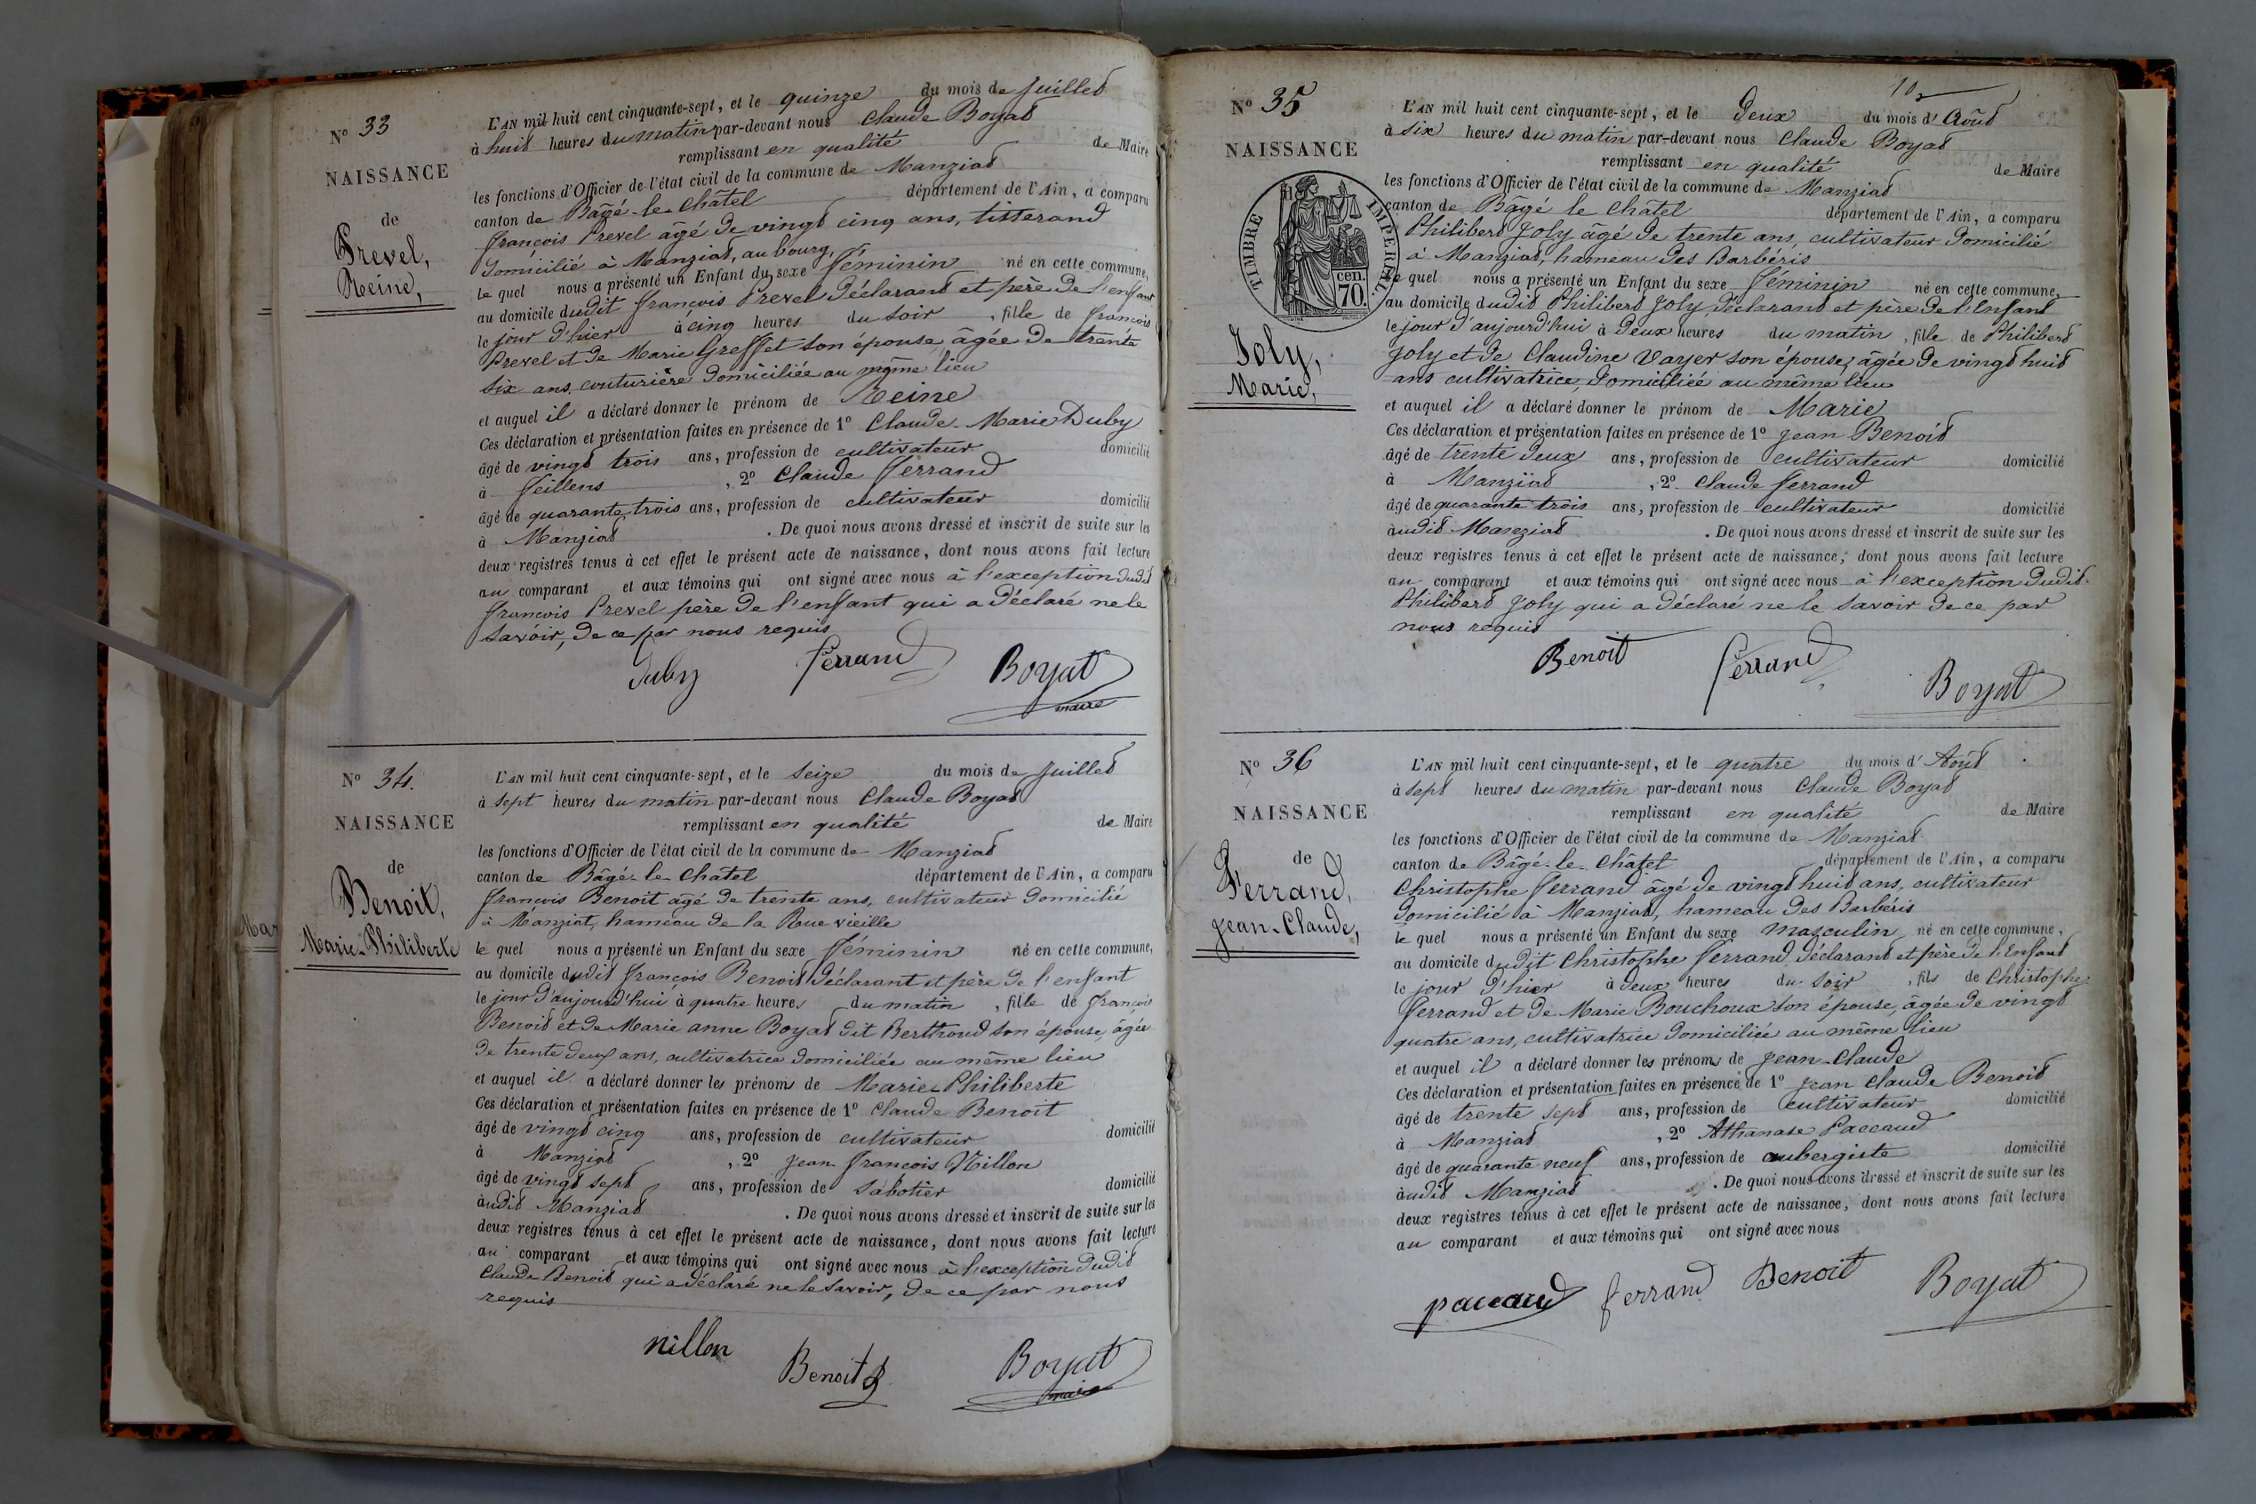 N° 33
NAISSANCE
de
Prevel,
Reine,
L'AN mil huit cent cinquante-sept, et le quinze du mois de Juillet
à huit heures du matin par-devant nous Claude Boyat
remplissant en qualité de Maire
les fonctions d'Officier de l'état civil de la commune de Manziat
canton de Bâgé-le-Châtel département de l'Ain, a comparu
françois Prevel âgé de vingt cinq ans, tisserand
domicilié à Manziat, au bourg,
le quel nous a présenté un Enfant du sexe féminin né en cette commune,
au domicile dudit françois Prevel déclarant et père de l'enfant
le jour d'hier à cinq heures du soir, fille de françois
Prevel et de Marie Greffet son épouse, âgée de trente
six ans, couturière domiciliée au même lieu
et auquel il a déclaré donner le prénom de Reine
Ces déclaration et présentation faites en présence de 1° Claude-Marie Duby
âgé de vingt trois ans, profession de cultivateur domicilié
à feillens, 2° Claude ferrand
âgé de quarante trois ans, profession de cultivateur domicilié
à Manziat. De quoi nous avons dressé et inscrit de suite sur les
deux registres tenus à cet effet le présent acte de naissance, dont nous avons fait lecture
au comparant et aux témoins qui ont signé avec nous à l'exception dudit
françois Prevel père de l'enfant qui a déclaré ne le
savoir, de ce par nous requis
Duby ferrand Boyat
maire
N° 34.
NAISSANCE
de
Benoit,
Marie-Philiberte
L'AN mil huit cent cinquante-sept, et le seize du mois de Juillet
à sept heures du matin par-devant nous Claude Boyat
remplissant en qualité de Maire
les fonctions d'Officier de l'état civil de la commune de Manziat
canton de Bâgé-le-Châtel département de l'Ain, a comparu
françois Benoit âgé de trente ans, cultivateur domicilié
à Manziat, hameau de la Rue vieille
le quel nous a présenté un Enfant du sexe féminin né en cette commune,
au domicile dudit françois Benoit déclarant et père de l'enfant
le jour d'aujourd'hui à quatre heures du matin, fille de françois
Benoit et de Marie anne Boyat dit Berthoud son épouse, âgée
de trente deux ans, cultivatrice domiciliée au même lieu
et auquel il a déclaré donner les prénoms de Marie-Philiberte
Ces déclaration et présentation faites en présence de 1° Claude Benoit
âgé de vingt cinq ans, profession de cultivateur domicilié
à Manziat, 2° Jean françois Nillon
âgé de vingt sept ans, profession de sabotier domicilié
àudit Manziat. De quoi nous avons dressé et inscrit de suite sur les
deux registres tenus à cet effet le présent acte de naissance, dont nous avons fait lecture
au comparant et aux témoins qui ont signé avec nous à l'exception dudit
Claude Benoit qui a déclaré ne le savoir, de ce par nous
requis
nillon Benoit Boyat
maire
Mar
10
N° 35
NAISSANCE
TIMBRE IMPERIAL
cen.
70.
Joly,
Marie,
L'AN mil huit cent cinquante-sept, et le deux du mois d'Août
à six heures du matin par-devant nous Claude Boyat
remplissant en qualité de Maire
les fonctions d'Officier de l'état civil de la commune de Manziat
canton de Bâgé le Châtel département de l'Ain, a comparu
Philibert Joly âgé de trente ans, cultivateur domicilié
à Manziat, hameau des Barbéris
le quel nous a présenté un Enfant du sexe féminin né en cette commune,
au domicile dudit Philibert Joly déclarant et père de l'Enfant
le jour d'aujourd'hui à deux heures du matin, fille de Philibert
Joly et de Claudine Vayer son épouse, âgée de vingt huit
ans cultivatrice, domiciliée au même lieu
et auquel il a déclaré donner le prénom de Marie
Ces déclaration et présentation faites en présence de 1° Jean Benoit
âgé de trente deux ans, profession de cultivateur domicilié
à Manziat, 2° Claude ferrand
âgé de quarante trois ans, profession de cultivateur domicilié
àudit Manziat. De quoi nous avons dressé et inscrit de suite sur les
deux registres tenus à cet effet le présent acte de naissance, dont nous avons fait lecture
au comparant et aux témoins qui ont signé avec nous à l'exception dudit
Philibert Joly qui a déclaré ne le savoir de ce par
nous requis
Benoit ferrand Boyat
N° 36
NAISSANCE
de
Ferrand,
Jean-Claude,
L'AN mil huit cent cinquante-sept, et le quatre du mois d'Août
à sept heures du matin par-devant nous Claude Boyat
remplissant en qualité de Maire
les fonctions d'Officier de l'état civil de la commune de Manziat
canton de Bâgé-le-Châtel département de l'Ain, a comparu
Christophe ferrand âgé de vingt huit ans, cultivateur
domicilié à Manziat, hameau des Barbéris
le quel nous a présenté un Enfant du sexe masculin né en cette commune,
au domicile dudit Christophe ferrand, déclarant et père de l'Enfant
le jour d'hier à deux heures du soir, fils de Christophe
ferrand et de Marie Bouchoux son épouse, âgée de vingt
quatre ans, cultivatrice domiciliée au même lieu
et auquel il a déclaré donner les prénoms de Jean-Claude
Ces déclaration et présentation faites en présence de 1° Jean Claude Benoit
âgé de trente sept ans, profession de cultivateur domicilié
à Manziat, 2° Athanase Paccaud
âgé de quarante neuf ans, profession de aubergiste domicilié
àudit Manziat. De quoi nous avons dressé et inscrit de suite sur les
deux registres tenus à cet effet le présent acte de naissance, dont nous avons fait lecture
au comparant et aux témoins qui ont signé avec nous
paccaud ferrand Benoit Boyat